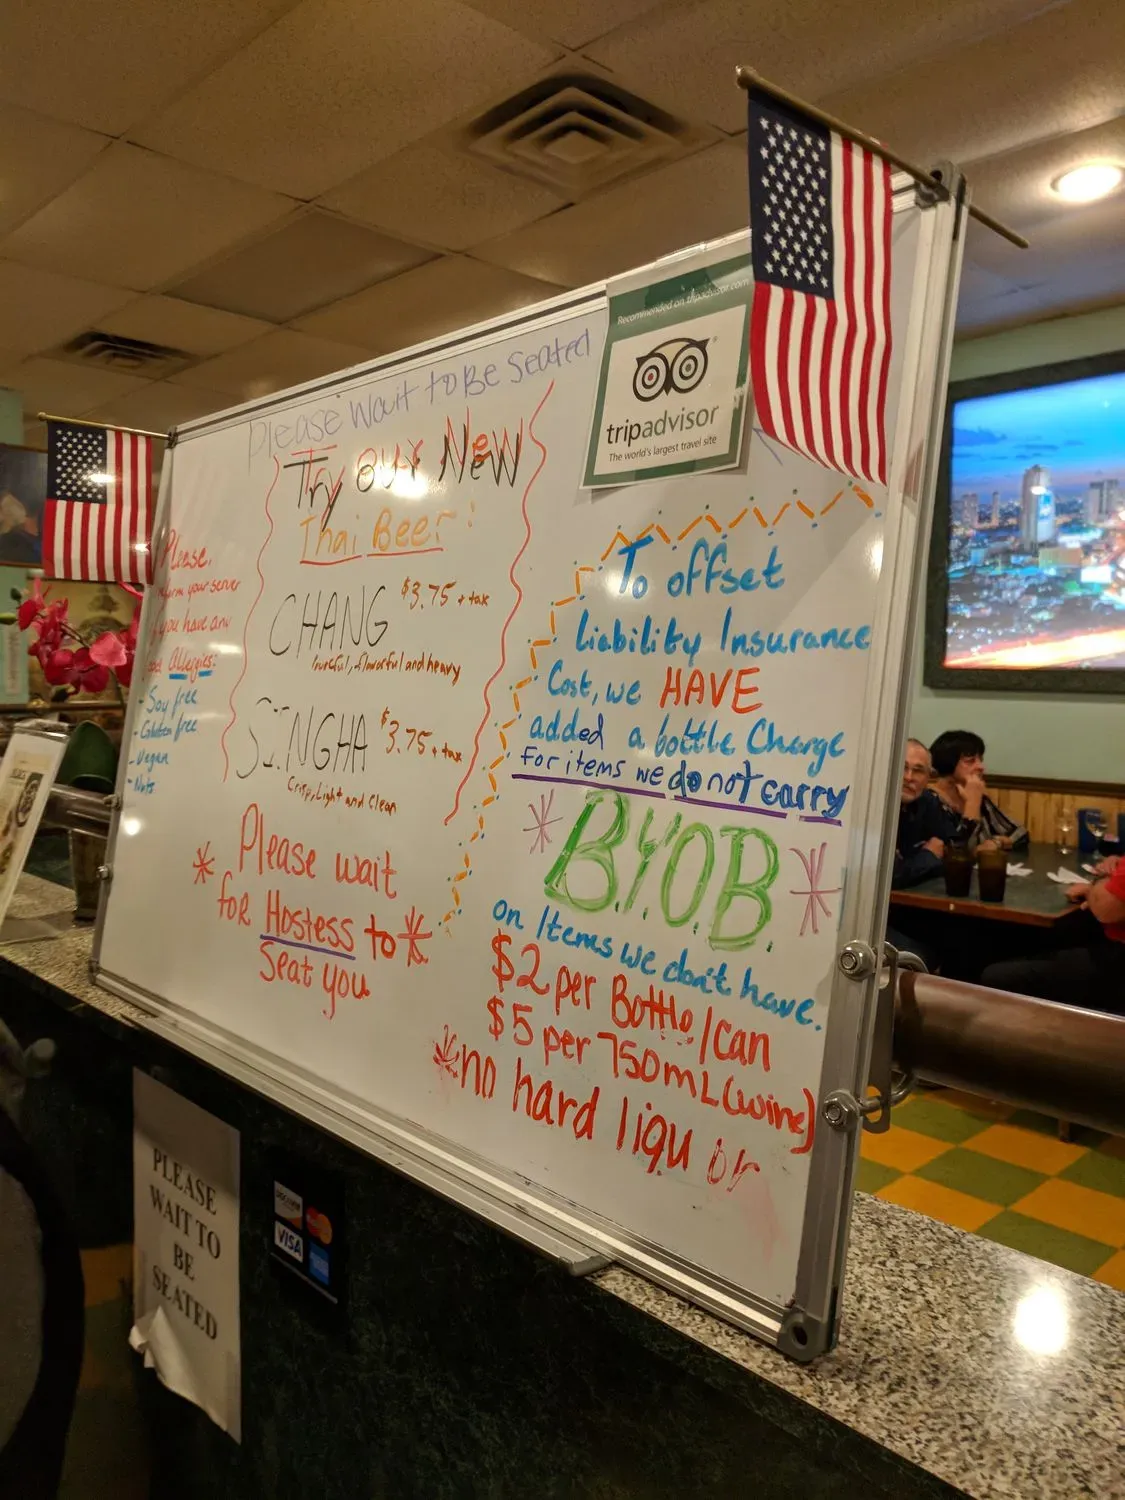 Please Wait to Be Seated
Try our New
Thai Beer:
CHANG $3.75 + tax
flavorful and heavy
SINGHA $3.75 + tax
Crisp, Light and Clean
Please,
your server
you have any
Allergies:
- Soy free
- Gluten free
- Vegan
- Nuts
* Please wait
for Hostess to *
Seat you
Recommended on tripadvisor.com
tripadvisor
The world's largest travel site
To offset
Liability Insurance
Cost, we HAVE
added a bottle Charge
for items we do not carry
* B.Y.O.B. *
on Items we don't have.
$2 per Bottle/can
$5 per 750mL (wine)
*no hard liquor
PLEASE
WAIT TO
BE
SEATED
DISCOVER
MasterCard
VISA